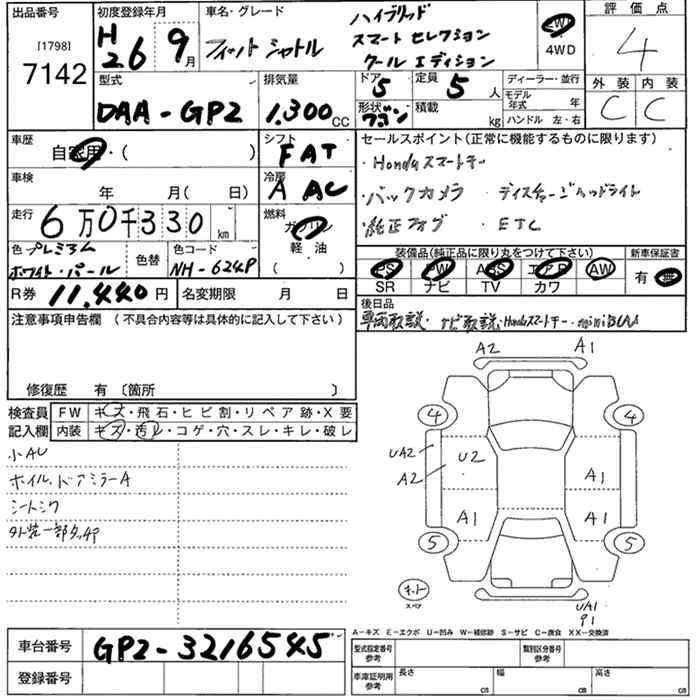 出品番号 初度登録年月 車名・グレード 評価点
[1798]
7142
H26 9月
フィット シャトル
ハイブリッド
スマート セレクション
クール エディション
2WD
4WD
4
型式 排気量 ドア 定員 ディーラー・並行 外装 内装
DAA-GP2 1,300CC 5 5人
モデル年式 年
形状 ワゴン 積載 kg ハンドル 左・右
C C
車歴 シフト セールスポイント(正常に機能するものに限ります)
自家用・( ) FAT
・Hondaスマートキー
車検 冷房
年 月(日) A AC
・バックカメラ ・ディスチャージヘッドライト
走行 燃料
6万0千330 km ガソリン
・純正フォグ ・ETC
軽・油
( )
色 プレミアム
ホワイト・パール
色替 色コード
NH-624P
装備品(純品に限り丸をつけて下さい) 新車保証書
PS PW ABS エアB AW 有・無
SR ナビ TV カワ
R券 11,440円 名変期限 月 日
後日品
車両取説・ナビ取説・Hondaスマートキー・miniB-CAS
注意事項申告欄 (不具合内容等は具体的に記入して下さい)
修復歴 有 〔箇所 〕
検査員 FW キズ・飛石・ヒビ割・リペア跡・X要
記入欄 内装 キズ・汚レ・コゲ・穴・スレ・キレ・破レ
小AU
ホイル、ドアミラーA
シートシワ
外装一部タッチP
A2 A1
4 4
UA2 U2
A2 A1
A1 A1
5 5
キット
スペア
UA1
A-キズ E-エクボ U-凹み W-補修跡 S-サビ C-腐食 XX-交換済
車台番号 GP2-3216545
登録番号
型式指定番号 参考 類別区分番号 参考
車庫証明用 参考 長さ cm 幅 cm 高さ cm